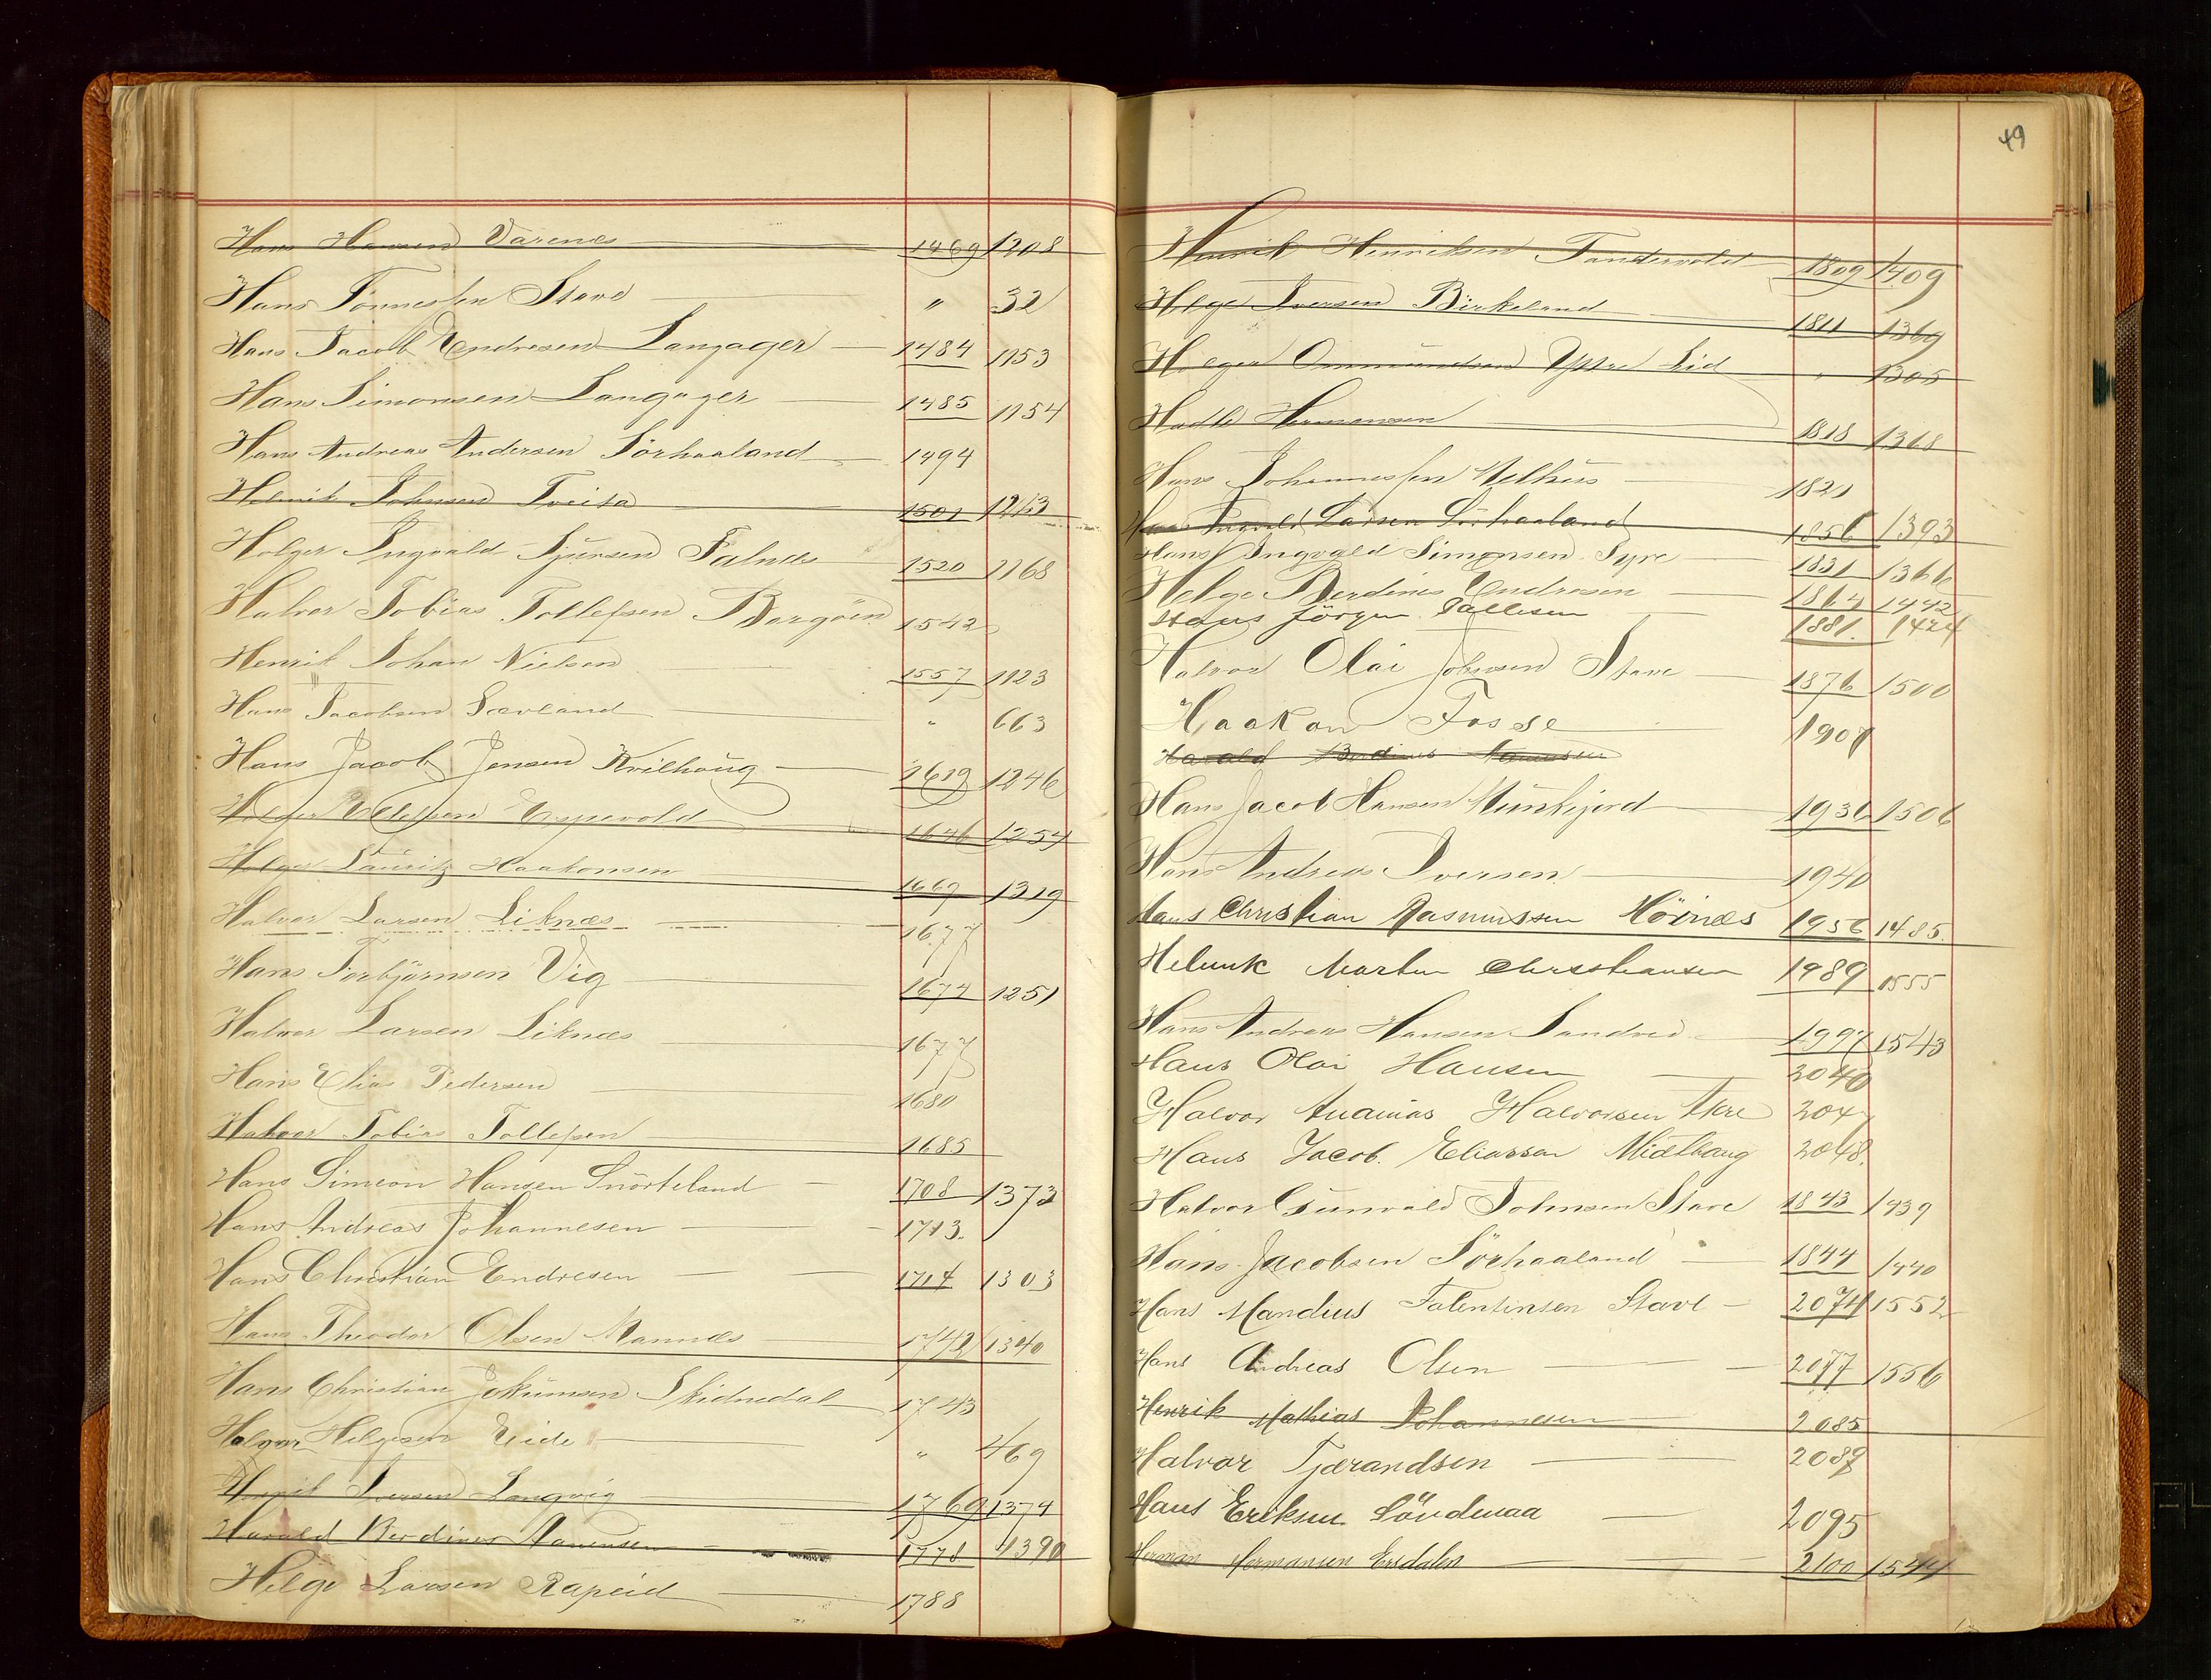 Hans Hansen Varenes 1469 1208
Hans Tönnessen Stave " 32
Hans Jacob Endresen Langager 1484 1153
Hans Simonsen Langager 1485 1154
Hans Andreas Andersen Sörhaaland 1494
Helmik Johnsen Tveita 1501
Holger Ingvald Sjursen Falnes 1520 1168
Halvor Tobias Tollefsen Borgöen 1542
Henrik Johan Nielsen 1557 1123
Hans Jacobsen Sævland " 663
Hans Jacob Jensen Kvilhoug 1619 1246
Holger 1646 1254
Holger Lauritz Haakonsen 1669 1319
Halvor Larsen Liknæs 1677
Hans Torbjörnsen Vig 1674 1251
Halvor Larsen Liknæs 1677
Hans Elias Pedersen 1680
Halvor Tobias Tollefsen 1685
Hans Simeon Hansen Snörteland 1708 1373
Hans Andreas Johannesen 1713.
Hans Christian Endresen 1714 1303
Hans Theodor Olsen Mannæs 1742 1340
Hans Christian Jokumsen Skidnedal 1743
Holger Helgesen Eide " 469
Henrik Iversen Langvig 1769 1374
Harald Berdines 1778 1390
Helge Larsen Rapeid 1788
49
Henrik Henriksen Tandervold 1809 1409
Helge Iversen Birkeland 1811 1369
Holger Ommundsen Yttre Lid " 1305
Hadle Hermansen 1818 1318
Hans Johannessen Melhus 1821
Hans Ingvald Larsen Sörhaaland 1856 1393
Hans Ingvald Simonsen Syre 1831 1366
Helge Berdines Endresen 1864 1442
Hans Jörgen Tallesen 1881. 1424
Halvor Olai Johnsen Stave 1876 1500
Haakon Fosse 1907
Harald Berdines
Hans Jacob Hansen Munkejord 1936 1506
Hans Andreas Iversen 1940
Hans Christian Rasmussen Höinæs 1956 1485.
Helmik Martin Christiansen 1989 1555
Hans Andreas Hansen Sandved 1997 1543
Hans Olai Hansen 2040
Halvor Ananias Halvorsen Akre 2047
Hans Jacob. Eliassen Midtbaug 2048.
Halvor Gunvald Johnsen Stave 1843 1439
Hans Jacobsen Sörhaaland 1844 1440
Hans Mandius Falentinsen Stave 2074 1552
Hans Andreas Olsen 2077 1556
Henrik Mathias Johannesen 2085
Halvor Tjærandsen 2087
Hans Eriksen Söndenaa 2095
Herman Hermansen Ersdalen 2100 1544